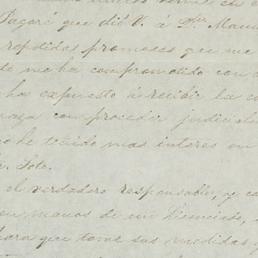 Pagaré que dió V. á Dn. Manu
repetidas promesas que me
me ha comprometido con
ha expuesto á recibir la
proceder judicial
he tenido mas interes en
Sote.
el verdadero responsable, y
en manos de un licenciado,
para que tome sus medidas y